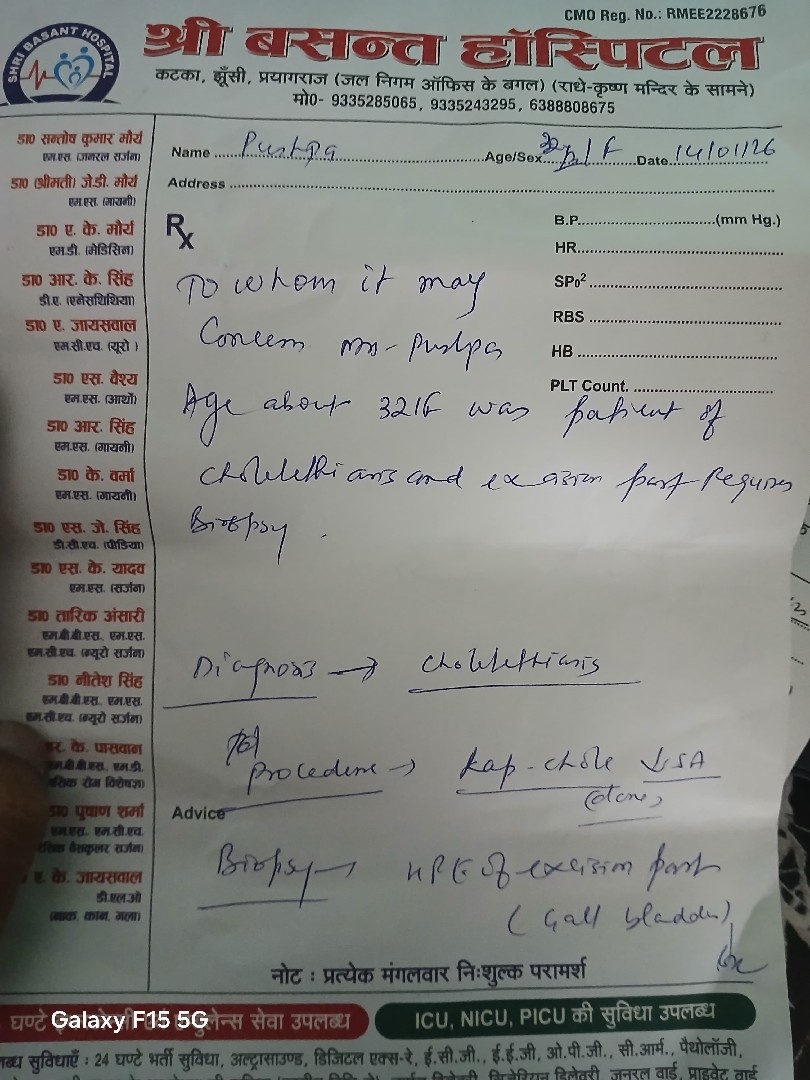 CMO Reg. No.: RMEE2228676
SHRI BASANT HOSPITAL
श्री बसन्त हॉस्पिटल
कटका, झूँसी, प्रयागराज (जल निगम ऑफिस के बगल) (राधे-कृष्ण मन्दिर के सामने)
मो0- 9335285065, 9335243295, 6388808675
डा0 सन्तोष कुमार मौर्य
एम.एस. (जनरल सर्जन)
डा0 (श्रीमती) जे.डी. मौर्य
एम.एस. (गायनी)
डा0 ए. के. मौर्य
एम.डी. (मेडिसिन)
डा0 आर. के. सिंह
डी.ए. (एनेसथिथिया)
डा0 ए. जायसवाल
एम.सी.एच. (यूरो )
डा0 एस. वैश्य
एम.एस. (आर्थो)
डा0 आर. सिंह
एम.एस. (गायनी)
डा0 के. वर्मा
एम.एस. (गायनी)
डा0 एस. जे. सिंह
डी.सी.एच. (पीडिया)
डा0 एस. के. यादव
एम.एस. (सर्जन)
डा0 तारिक अंसारी
एम.बी.बी.एस. एम.एस.
एम.सी.एच. (न्यूरो सर्जन)
डा0 नीतेश सिंह
एम.बी.बी.एस. एम.एस.
एम.सी.एच. (न्यूरो सर्जन)
र. के. पासवान
एम.डी.
रोग विशेषज्ञ)
डा0 पुषाण शर्मा
एम.एस. एम.सी.एच.
वैसकुलर सर्जन)
ए. के. जायसवाल
डी.एल.ओ
(नाक, कान, गला)
Name Pushpa Age/Sex F Date 14/01/26
Address
Rx
B.P. (mm Hg.)
HR
SPo²
RBS
HB
PLT Count.
To whom it may
Concern mrs- Pushpa
Age about 32/F was patient of
cholelethiasis and excision part Requires
Biopsy.
Diagnosis → cholelethiasis
Procedure → Lap-chole ↓SA
(done)
Advice
Biopsy → HPE of excision part
(Gall bladder)
नोट : प्रत्येक मंगलवार निःशुल्क परामर्श
घण्टे एम्बुलेन्स सेवा उपलब्ध
ICU, NICU, PICU की सुविधा उपलब्ध
Galaxy F15 5G
सुविधाएँ : 24 घण्टे भर्ती सुविधा, अल्ट्रासाउण्ड, डिजिटल एक्स-रे, ई.सी.जी., ई.ई.जी, ओ.पी.जी., सी.आर्म., पैथोलॉजी,
डिलेवरी, जनरल वार्ड, प्राइवेट वार्ड